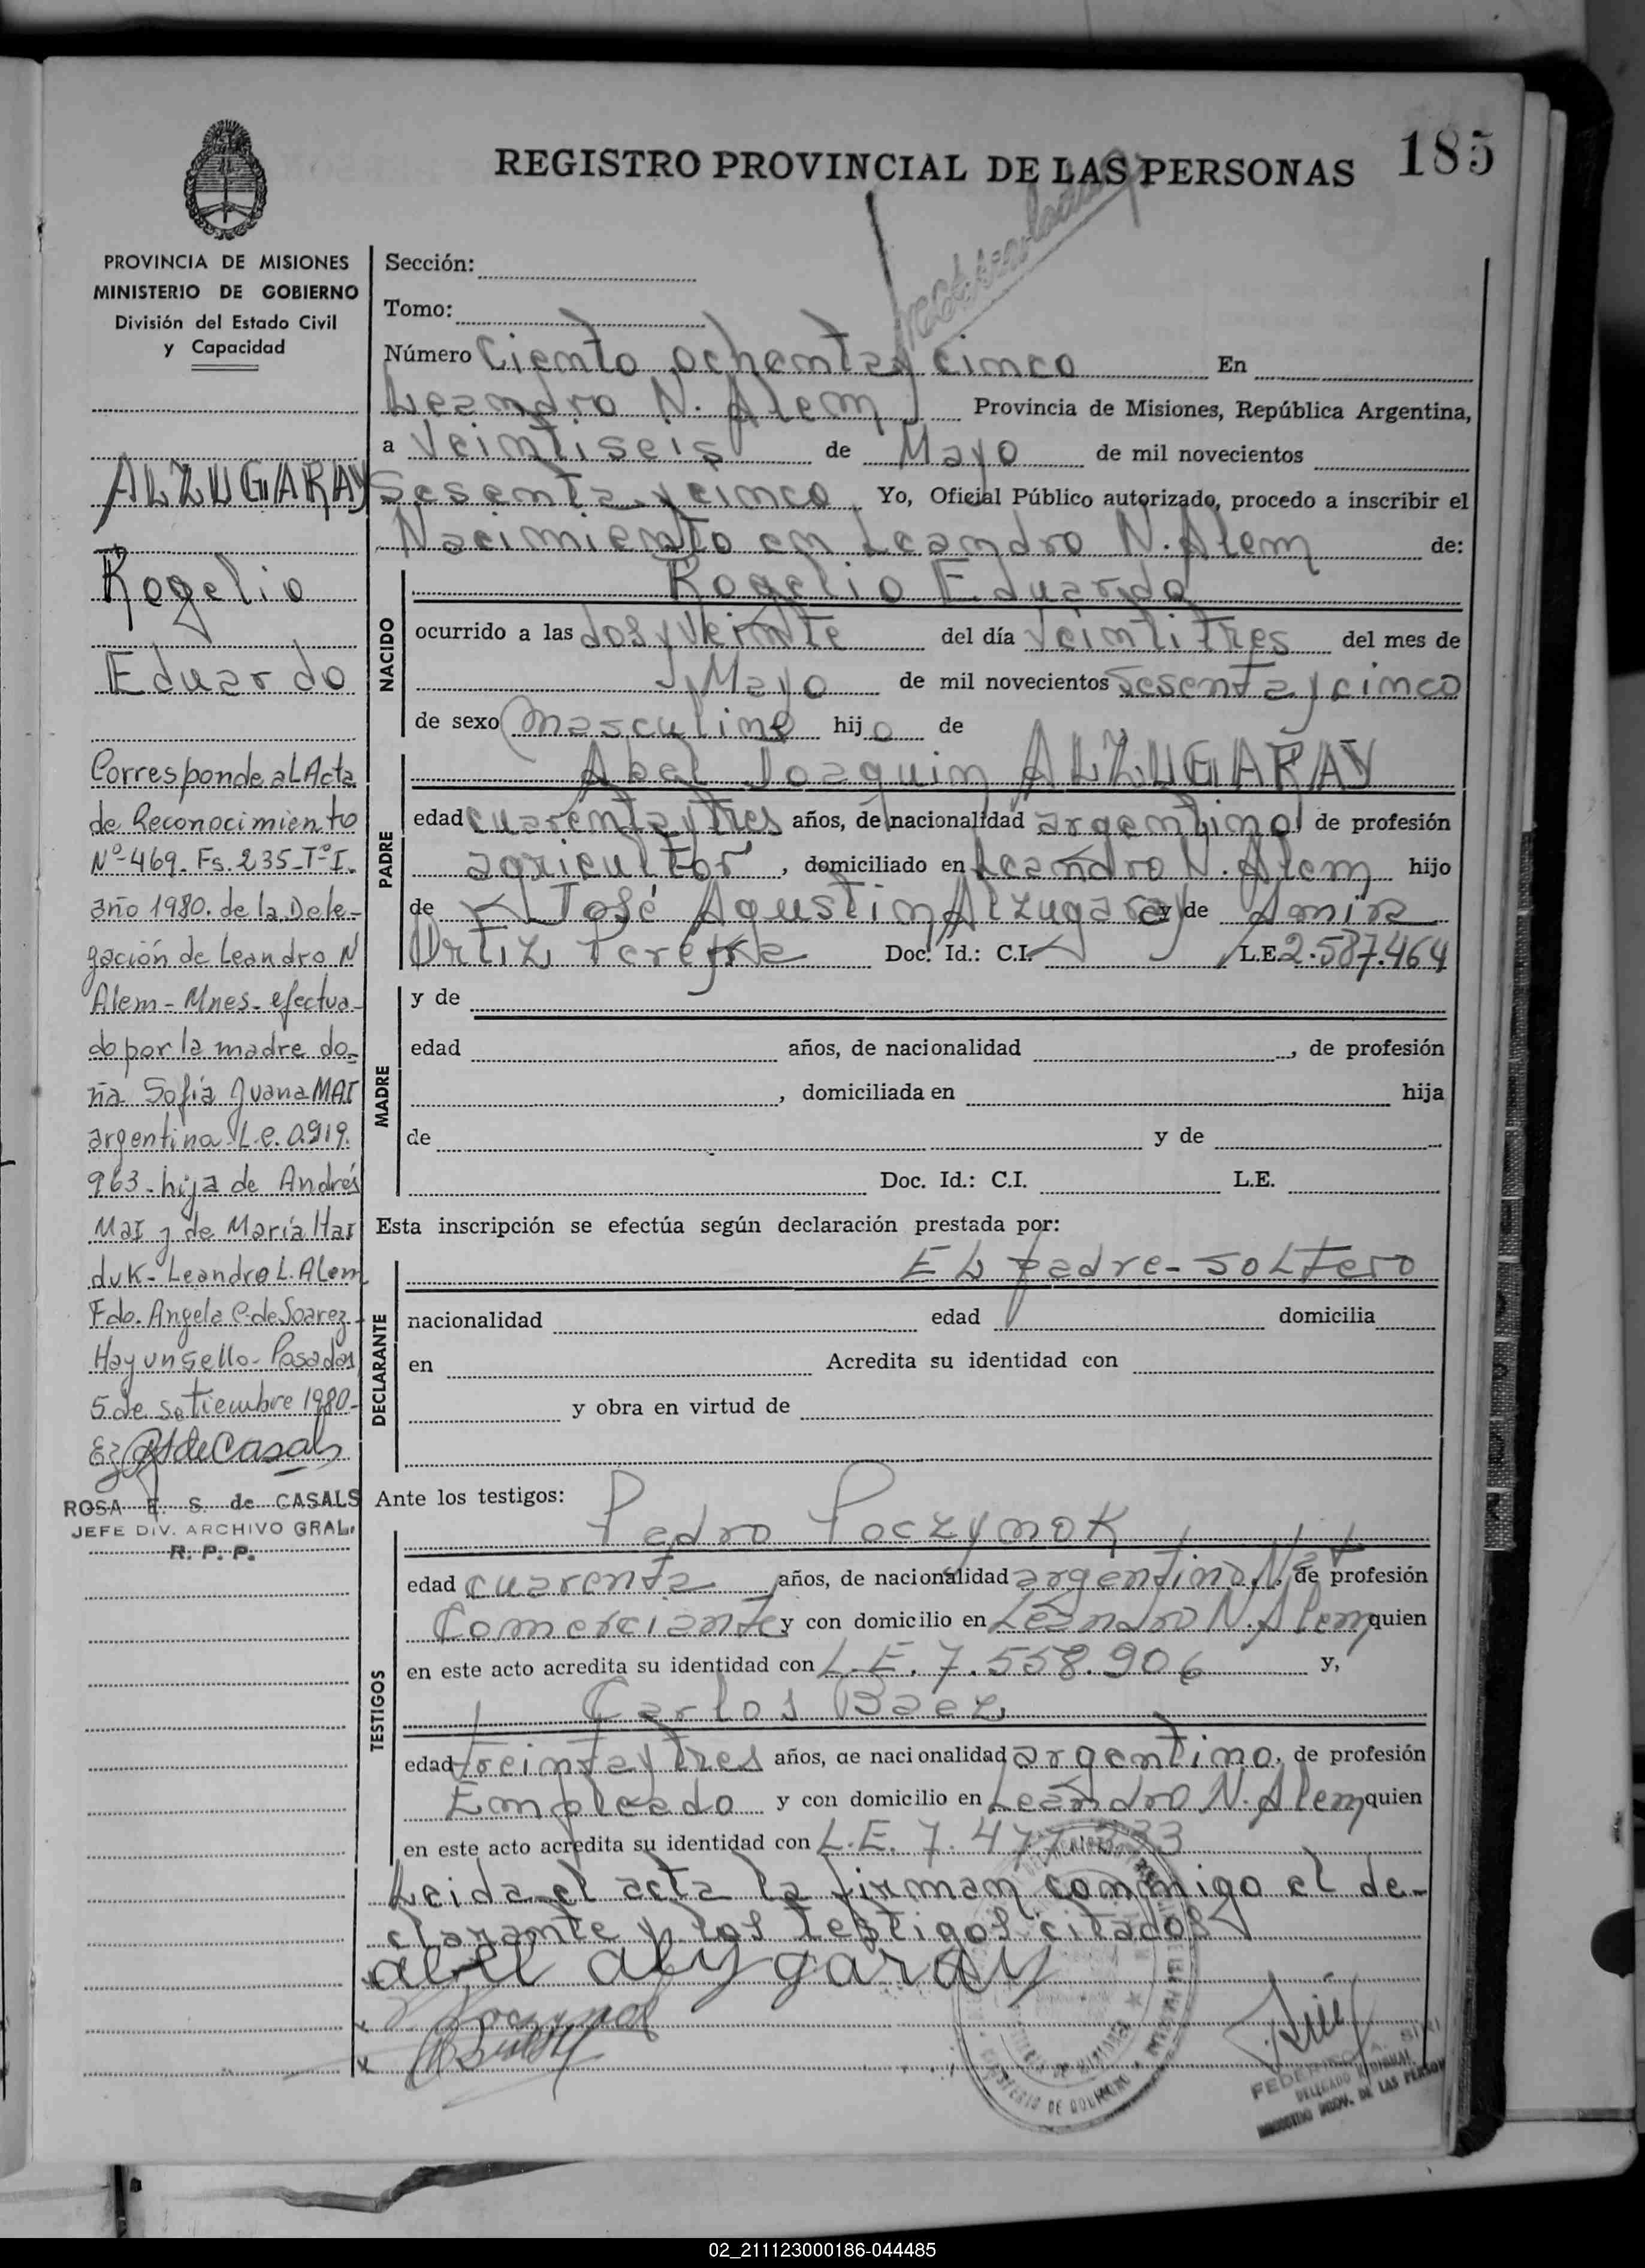 REGISTRO PROVINCIAL DE LAS PERSONAS 185
PROVINCIA DE MISIONES
MINISTERIO DE GOBIERNO
División del Estado Civil
y Capacidad
ALZUGARAY
Rogelio
Eduardo
Corresponde al Acta
de Reconocimiento
Nº 469. Fs. 235-Tº I.
año 1980. de la Dele-
gación de Leandro N
Alem - Mnes - efectua-
do por la madre do-
ña Sofía Juana MAI
argentina L.e. 0.919.
963 - hija de Andrés
MaI y de María Har
duk - Leandro L. Alem
Fdo. Angela C. de Soarez
Hay un sello - Posadas
5 de setiembre 1980-
de Casals
ROSA E. S. de CASALS
JEFE DIV. ARCHIVO GRAL.
R. P. P.
Sección:
Tomo:
Número Ciento ochenta y cinco En
Leandro N. Alem Provincia de Misiones, República Argentina,
a Veintiseis de Mayo de mil novecientos
Sesenta y cinco Yo, Oficial Público autorizado, procedo a inscribir el
Nacimiento en Leandro N. Alem de:
NACIDO
Rogelio Eduardo
ocurrido a las dos y Veinte del día Veintitres del mes de
Mayo de mil novecientos Sesenta y cinco
de sexo masculino hijo de
PADRE
Abel Joaquin ALZUGARAY
edad cuarenta y tres años, de nacionalidad argentino de profesión
agricultor, domiciliado en Leandro N. Alem hijo
de José Agustin Alzugaray y de Amira
Ortiz Pereyra Doc. Id.: C.I. L.E. 2.587.464
MADRE
y de
edad años, de nacionalidad , de profesión
, domiciliada en hija
de y de
Doc. Id.: C.I. L.E.
Esta inscripción se efectúa según declaración prestada por:
DECLARANTE
El padre - soltero
nacionalidad edad domicilia
en Acredita su identidad con
y obra en virtud de
Ante los testigos:
TESTIGOS
Pedro Poczynok
edad cuarenta años, de nacionalidad argentino Nat, de profesión
Comerciante y con domicilio en Leandro N. Alem quien
en este acto acredita su identidad con L.E. 7.558.906 y,
Carlos Baez
edad treinta y tres años, de nacionalidad argentino, de profesión
Empleado y con domicilio en Leandro N. Alem quien
en este acto acredita su identidad con L.E. 7.477
Leida el acta la firman conmigo el de-
clarante y los testigos citados
abel alzygaray
DELEGADO REGIONAL
REGISTRO PROV. DE LAS PERSON
02_211123000186-044485